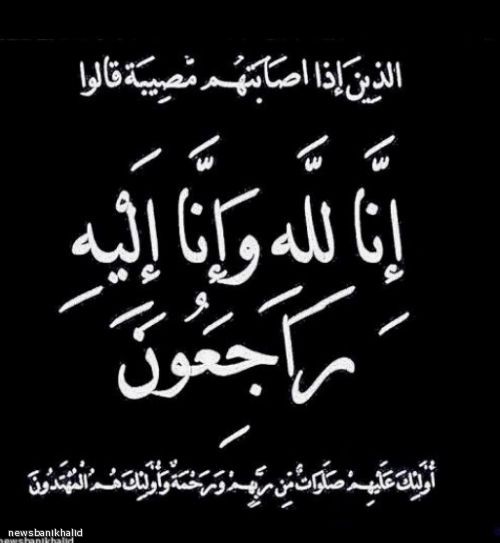 الذِينَ إِذا اصَابَتهُم مّصِيبَة قالوا
إِنَّا للَّهِ وَإِنَّا إِلَيْهِ
رَاجِعُونَ
أُولَئِكَ عَلَيهِمْ صَلَوَاتٌ مّنِ رَبِّهِمْ وَرَحْمَةٌ وَأُولَئِكَ هُمُ المُهْتَدُونَ
newsbanikhalid
newsbanikhalid